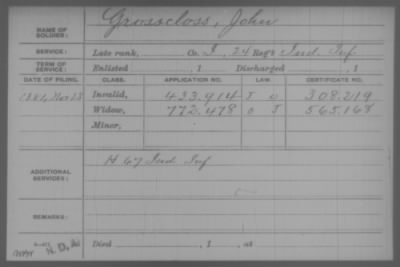 NAME OF SOLDIER: Grosscloss, John
SERVICE: Late rank, Co. I, 24 Reg't Ind. Inf
TERM OF SERVICE: Enlisted , 1 Discharged , 1
DATE OF FILING. CLASS. APPLICATION NO. LAW. CERTIFICATE NO.
Invalid, 433.914 J O 308.219
Widow, 772.478 O J 565.168
Minor,
ADDITIONAL SERVICES: H 67 Ind Inf
REMARKS:
Died , 1 , at